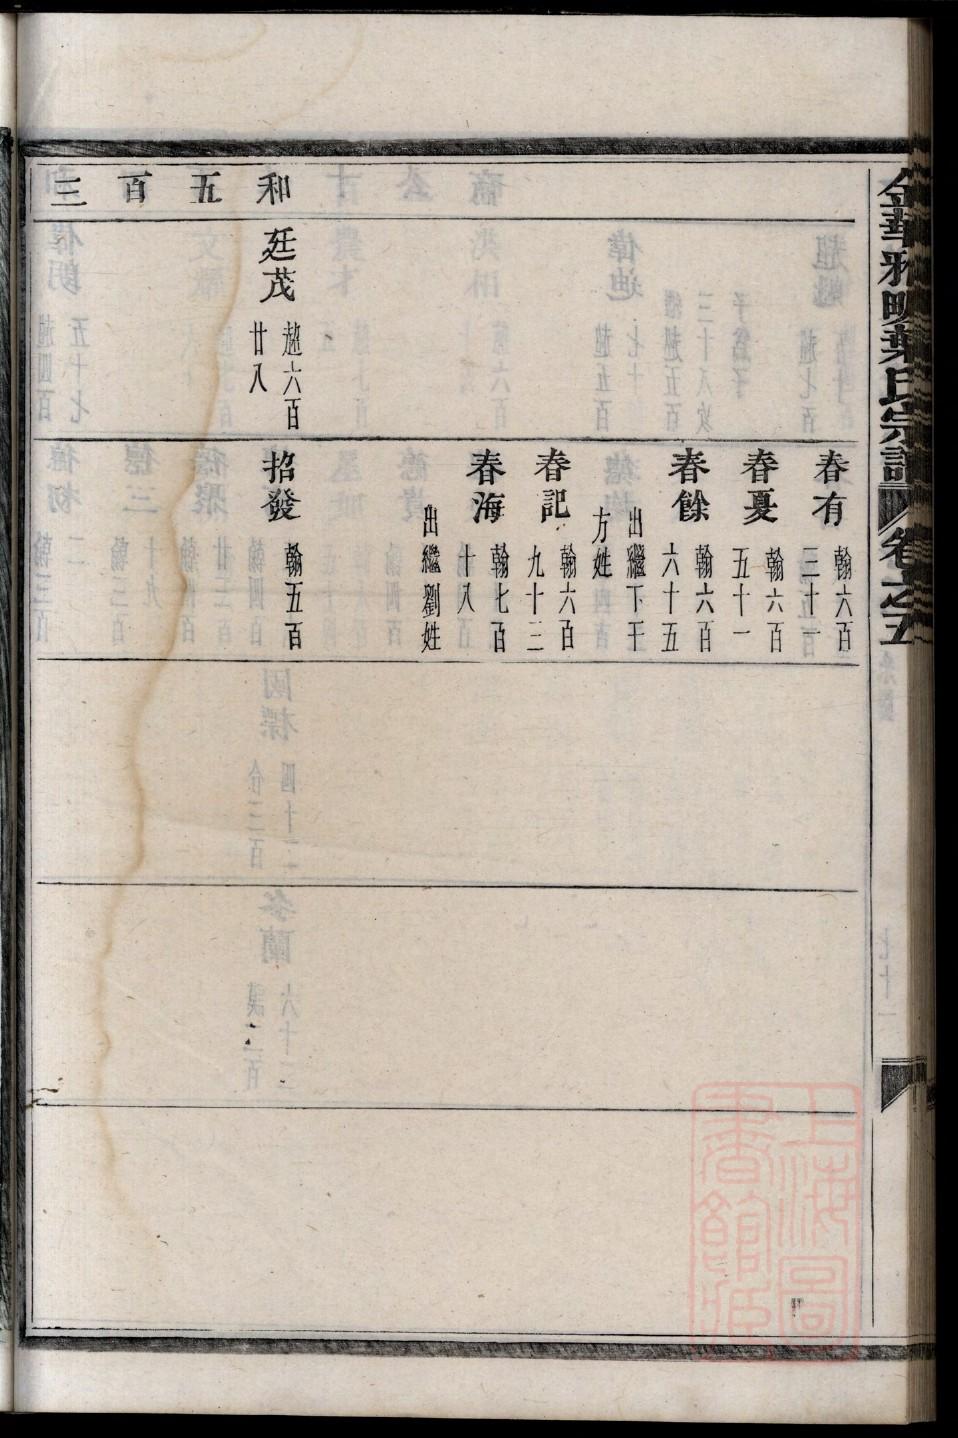 金華雅畈葉氏宗譜 卷之五
和五百三
廷茂 趙六百
廿八
春有 翰六百
三十一
春夏 翰六百
五十一
春餘 翰六百
六十五
出繼下王
方姓
春記 翰六百
九十三
春海 翰七百
十八
出繼劉姓
招發 翰五百
上海圖
書館藏